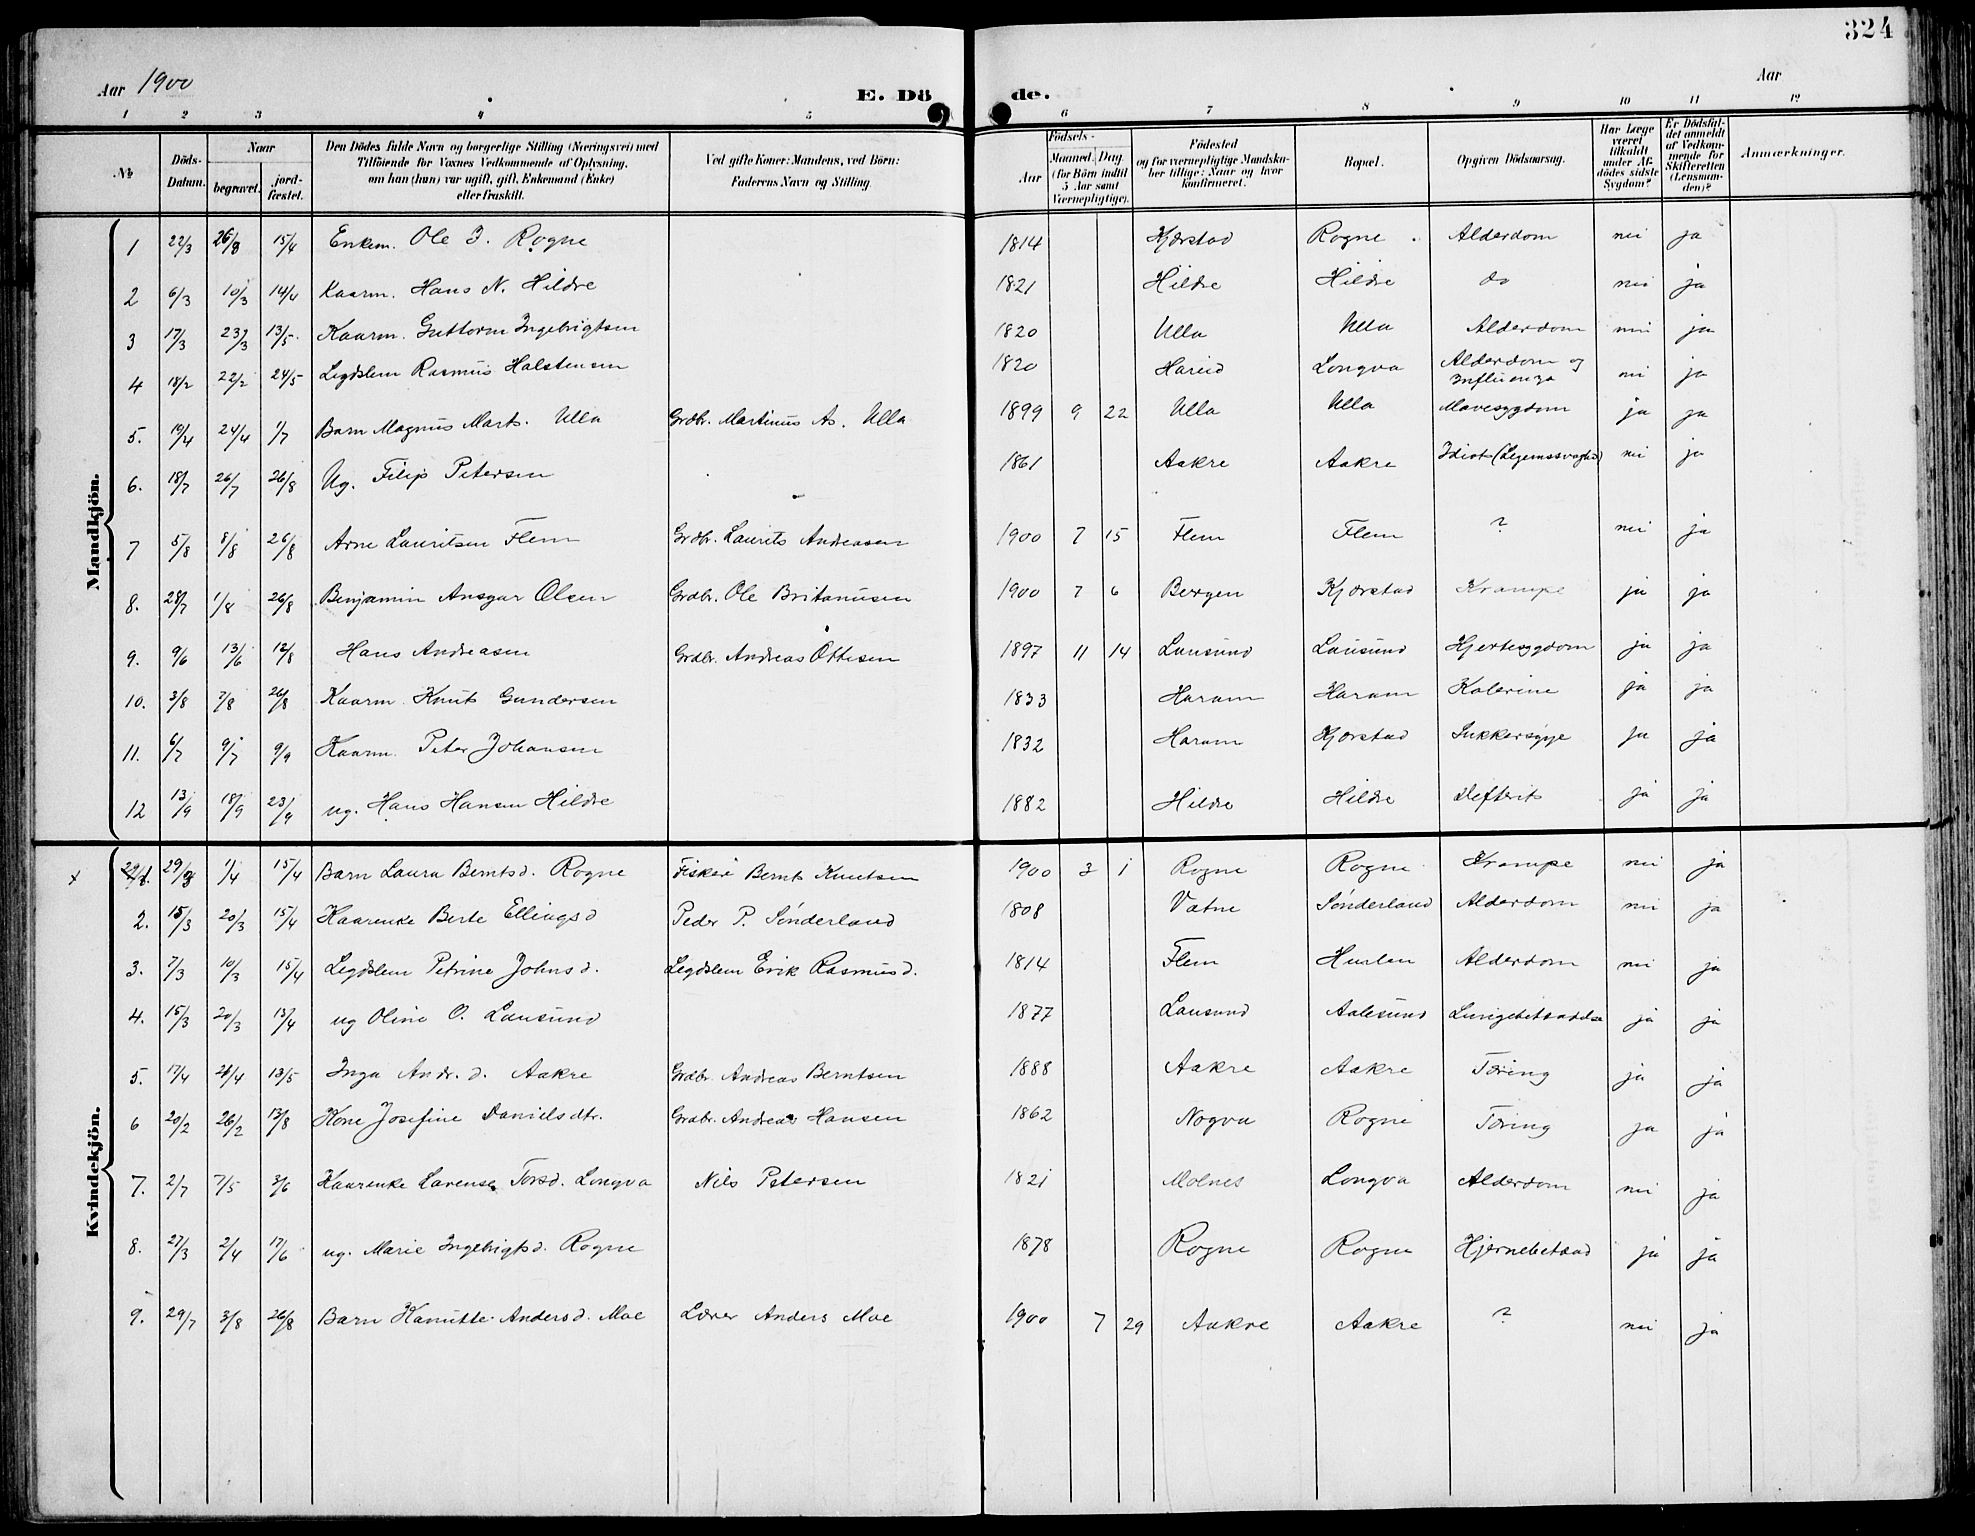 324
Aar 1900
E. Dö
de.
Aar
1 2 3 4 5 6 7 8 9 10 11 12
№
Döds-Datum.
Naar
begravet.
jord-fæstet.
Den Dödes fulde Navn og borgerlige Stilling (Næringsvei) med
Tilföiende for Voxnes Vedkommende af Oplysning,
om han (hun) var ugift, gift, Enkemand (Enke)
eller fraskilt.
Ved gifte Koner: Mandens, ved Börn:
Faderens Navn og Stilling.
Födsels-
Aar
Maaned. Dag.
(for Börn indtil
5 Aar samt
Værnepligtige).
Födested
og for værnepligtige Mandska-
ber tillige: Naar og hvor
konfirmeret.
Bopæl.
Opgiven Dödsaarsag.
Har Læge
været
tilkaldt
under Af-
dödes sidste
Sygdom?
Er Dödsfal-
det anmeldt
af Vedkom-
mende for
Skifteretten
(Lensman-
den)?
Anmærkninger.
Mandkjön.
1 22/3 26/8 15/4 Enkem. Ole J. Rogne 1814 Kjærstad Rogne Alderdom nei ja
2 6/3 10/3 14/4 Kaarm. Hans N. Hildre 1821 Hildre Hildre do nei ja
3 17/3 23/3 13/5 Kaarm. Guttorm Ingebrigtsen 1820 Ulla Ulla Alderdom nei ja
4 18/2 22/2 24/5 Legdslem Rasmus Halstensen 1820 Hareid Longva Alderdom og
Influenza nei ja
5. 19/4 24/4 1/7 Barn Magnus Mart s. Ulla Grdbr. Martinus As. Ulla 1899 9 22 Ulla Ulla Mavesygdom ja ja
6. 18/7 26/7 26/8 Ug. Filip Petersen 1861 Aakre Aakre Idiot (Legemssvaghed) nei ja
7 5/8 8/8 26/8 Arne Lauritsen Flem Grdbr. Laurits Andreasen 1900 7 15 Flem Flem ? nei ja
8. 28/7 1/8 26/8 Benjamin Ansgar Olsen Grdbr. Ole Britanusen 1900 7 6 Bergen Kjærstad Krampe ja ja
9. 9/6 13/6 12/8 Hans Andreasen Grdbr. Andreas Ottesen 1897 11 14 Lausund Lausund Hjertesygdom ja ja
10. 3/8 7/8 26/8 Kaarm. Knut Gundersen 1833 Haram Haram Kolerine ja ja
11. 6/7 9/7 9/9 Kaarm. Peter Johansen 1832 Haram Kjærstad Sukkersyge ja ja
12 13/9 18/9 23/9 ug. Hans Hansen Hildre 1882 Hildre Hildre Defterit ja ja
Kvindekjön.
x 29/3 1/4 15/4 Barn Laura Berntsd. Rogne Fisker Bernt Knutsen 1900 3 1 Rogne Rogne Krampe nei ja
2. 15/3 20/3 15/4 Kaarenke Berte Ellingsd Peder P. Sønderland 1808 Vatne Sønderland Alderdom nei ja
3. 7/3 10/3 15/4 Legdslem Petrine Johnsd. Legdslem Erik Rasmusd. 1814 Flem Hurlen Alderdom nei ja
4. 15/3 20/3 13/4 ug Oline O. Lausund 1877 Lausund Aalesund Lungebetændelse ja ja
5. 17/4 21/4 13/5 Inga Andr. d. Aakre Grdbr. Andreas Berntsen 1888 Aakre Aakre Tæring ja ja
6 20/2 26/2 13/8 Kone Josefine Danielsdtr. Grdbr. Andreas Hansen 1862 Nogva Rogne Tæring ja ja
7. 2/7 7/5 3/6 Kaarenke Lorense Torsd. Longva Nils Petersen 1821 Molnes Longva Alderdom nei ja
8. 27/3 2/4 17/6 ug. Marie Ingebrigtsd. Rogne 1878 Rogne Rogne Hjernebetænd ja ja
9. 29/7 3/8 26/8 Barn Kanutte Andersd. Moe Lærer Anders Moe 1900 7 29 Aakre Aakre ? nei ja